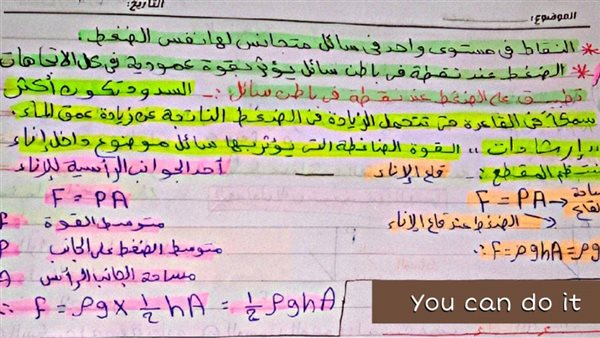 الموضوع: التاريخ:
* النقاط فى مستوى واحد فى سائل متجانس لها نفس الضغط.
* الضغط عند نقطة فى باطن سائل يؤثر بقوة عمودية فى كل الاتجاهات
تطبيق على الضغط عند نقطة فى باطن سائل :- السدود تكون أكثر
سمكاً فى القاعدة حتى تتحمل الزيادة فى الضغط الناتجة عن زيادة عمق الماء.
"إرشادات" القوة الضاغطة التى يؤثر بها سائل موضوع داخل إناء
منتظم المقطع :-
قاع الإناء
أحد الجوانب الرأسية للإناء
F = PA → مساحة القاع
الضغط عند قاع الإناء
∴ F = ρghA = ρg
F = PA
متوسط القوة F
متوسط الضغط على الجانب P
مساحة الجانب الرأسى A
∴ F = ρg × 1/2 hA = 1/2 ρghA
You can do it